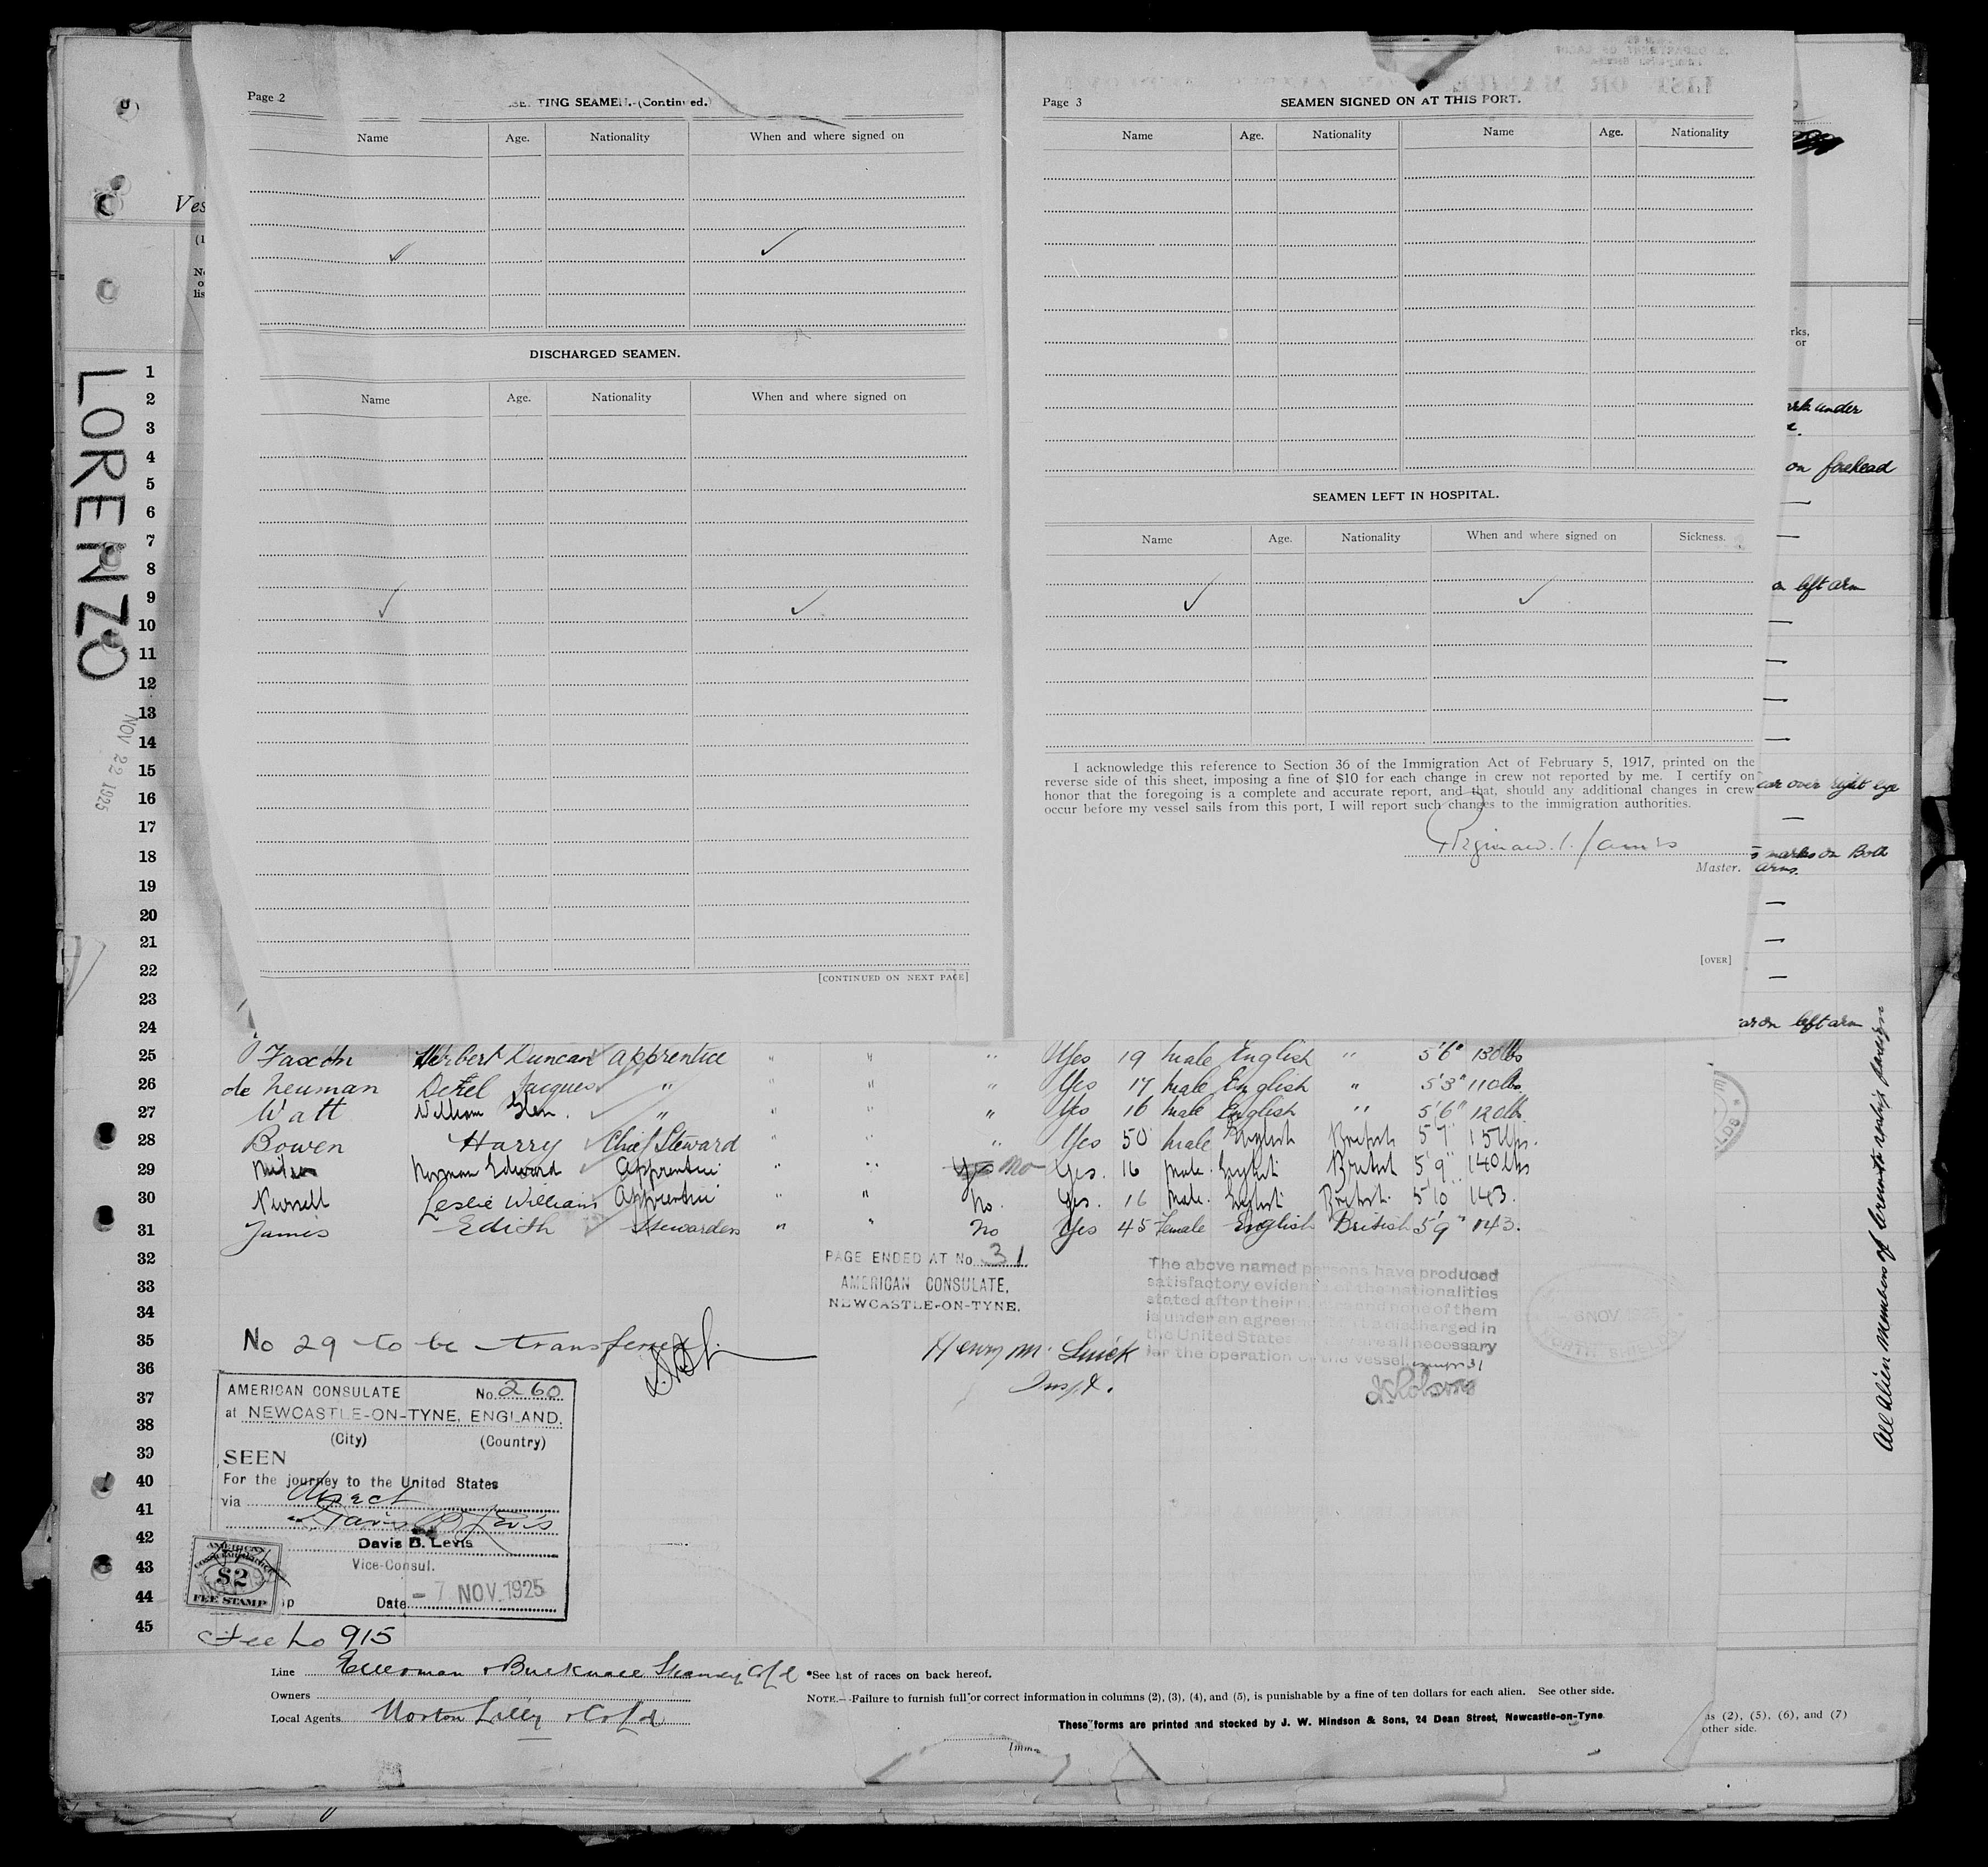 Page 2
TING SEAMEN.-(Continued.)
Name Age. Nationality When and where signed on
DISCHARGED SEAMEN.
Name Age. Nationality When and where signed on
[CONTINUED ON NEXT PAGE]
Page 3
SEAMEN SIGNED ON AT THIS PORT.
Name Age. Nationality Name Age. Nationality
SEAMEN LEFT IN HOSPITAL.
Name Age. Nationality When and where signed on Sickness.
I acknowledge this reference to Section 36 of the Immigration Act of February 5, 1917, printed on the
reverse side of this sheet, imposing a fine of $10 for each change in crew not reported by me. I certify on
honor that the foregoing is a complete and accurate report, and that, should any additional changes in crew
occur before my vessel sails from this port, I will report such changes to the immigration authorities.
Reginald. James
Master.
[OVER]
Ves
LORENZO
NOV 22 1925
rks,
or
under
on forehead
on left arm
over right eye
marks on Both
arms.
on left arm
1
2
3
4
5
6
7
8
9
10
11
12
13
14
15
16
17
18
19
20
21
22
23
24
25 Faxon Herbert Duncan Apprentice " " " Yes 19 Male English " 5'6" 130lbs
26 de Neuman Jacques " " " " Yes 17 Male English " 5'3" 110lbs
27 Watt William Glen. " " " " Yes 16 Male English " 5'6" 120lb
28 Bowen Harry Chief Steward " " " Yes 50 Male English British 5'7"
29 Norman Edward Apprentice " " Yes No Yes. 16 Male. English British 5'9" 140lbs
30 Leslie William Apprentice " " No. Yes. 16 Male. English British. 5'10" 143.
31 James Edith Stewardess " " No Yes 45 Female English British 5'9" 143.
32
33
34
35
36
37
38
39
40
41
42
43
44
45
PAGE ENDED AT No. 31
AMERICAN CONSULATE,
NEWCASTLE-ON-TYNE.
The above named persons have produced
satisfactory evidence of the nationalities
stated after their names and none of them
is under an agreement to be discharged in
the United States are all necessary
for the operation of the vessel.
6 NOV
NORTH SHIELDS
No 29 to be transferred
Henry M.
Insp.
AMERICAN CONSULATE No. 260
at NEWCASTLE-ON-TYNE, ENGLAND.
(City) (Country)
SEEN
For the journey to the United States
via direct
Davis B. Levis
Davis B. Levis
Vice-Consul.
Date -7 NOV. 1925
AMERICAN
$2
FEE STAMP
Fee No 915
All alien members of
Line Ellerman & Bucknall
Owners
Local Agents Norton Lilly & Co Ld
*See list of races on back hereof.
NOTE.—Failure to furnish full or correct information in columns (2), (3), (4), and (5), is punishable by a fine of ten dollars for each alien. See other side.
These forms are printed and stocked by J. W. Hindson & Sons, 24 Dean Street, Newcastle-on-Tyne.
ns (2), (5), (6), and (7)
other side.
Imm